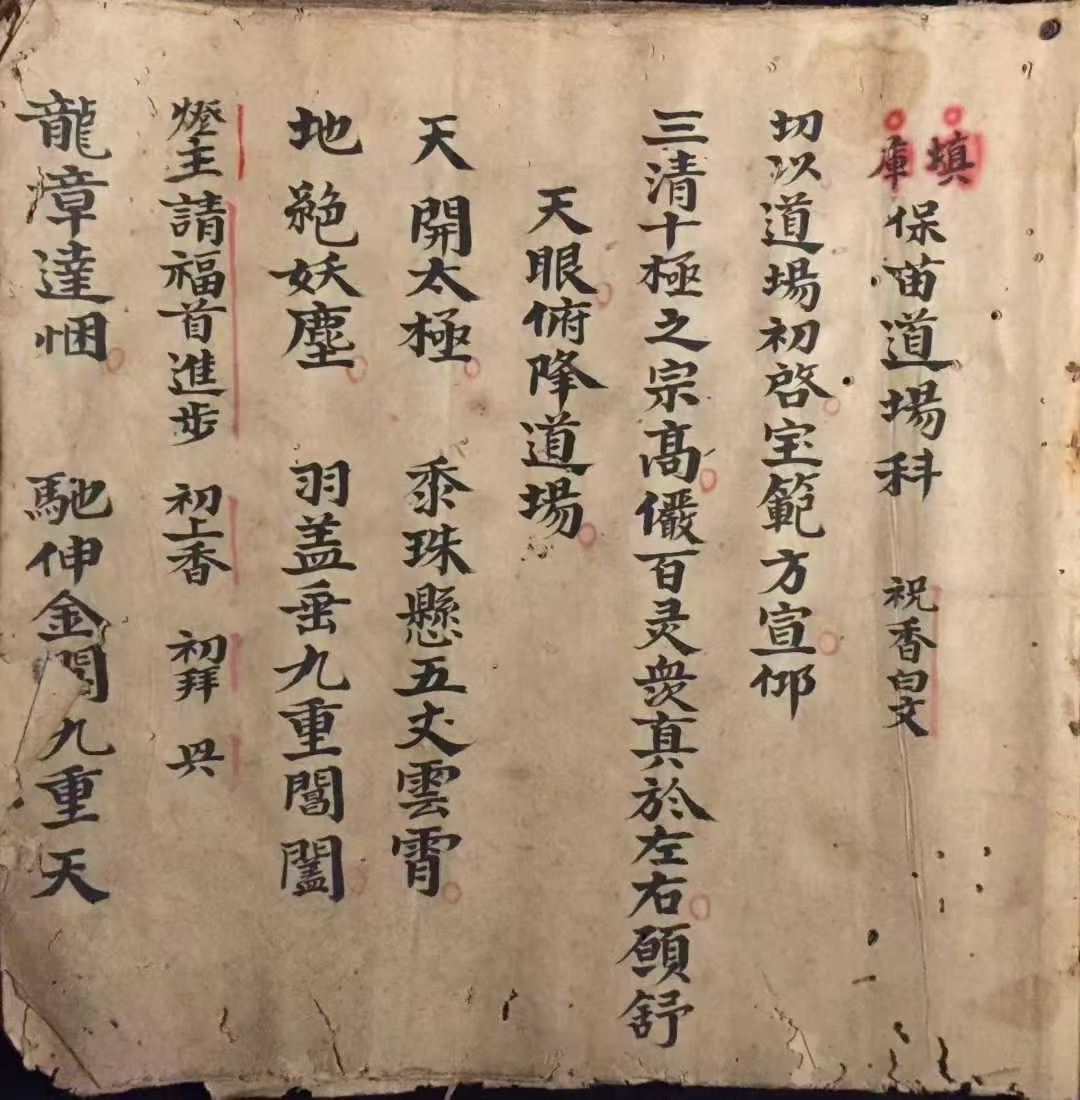 填庫 保苗道場科 祝香白文
切以道場初啓宝範方宣仰
三清十極之宗高儼百灵衆真於左右願舒
天眼俯降道場
天開太極 黍珠懸五丈雲霄
地絶妖塵 羽盖垂九重閶闔
燈主請福首進步 初上香 初拜 興
龍章達悃 馳伸金闕九重天